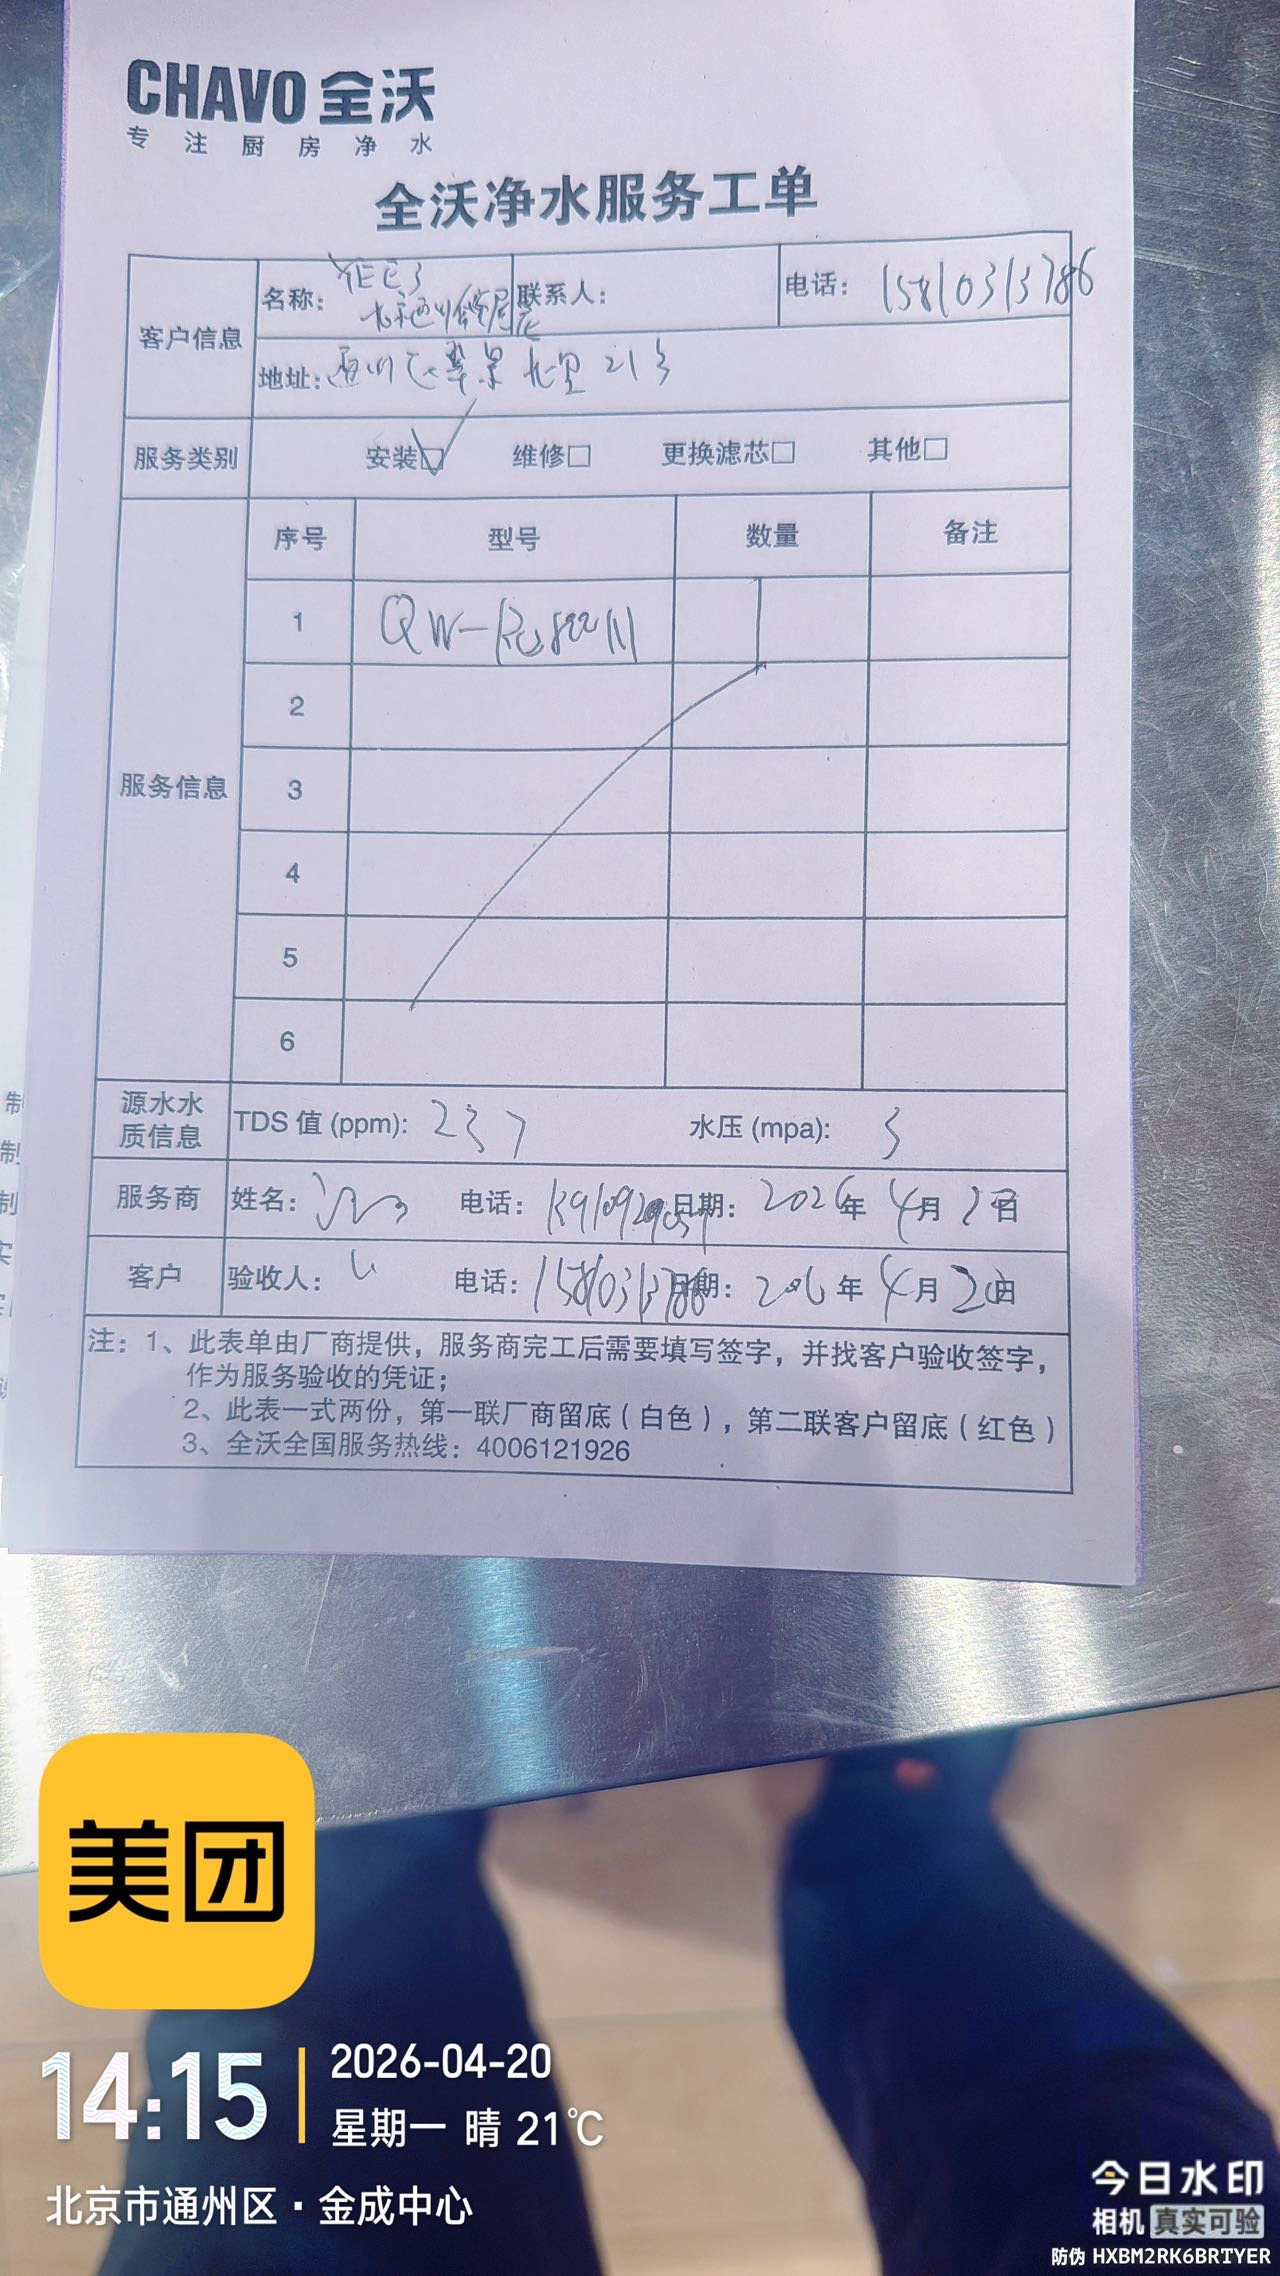 CHAVO 全沃
专注厨房净水
全沃净水服务工单
客户信息 名称: 联系人: 电话: 15810313786
地址: 翠景北里21号
服务类别 安装☑ 维修□ 更换滤芯□ 其他□
服务信息 序号 型号 数量 备注
1 QW- 1
2
3
4
5
6
源水水质信息 TDS 值 (ppm): 237 水压 (mpa): 3
服务商 姓名: 电话: 日期: 2026年 4月 日
客户 验收人: 电话: 15810313786 日期: 2026年 4月 20日
注: 1、此表单由厂商提供,服务商完工后需要填写签字,并找客户验收签字,
作为服务验收的凭证;
2、此表一式两份,第一联厂商留底(白色),第二联客户留底(红色)
3、全沃全国服务热线: 4006121926
制
制
制
实
美团
14:15
2026-04-20
星期一 晴 21℃
北京市通州区·金成中心
今日水印
相机 真实可验
防伪 HXBM2RK6BRTYER